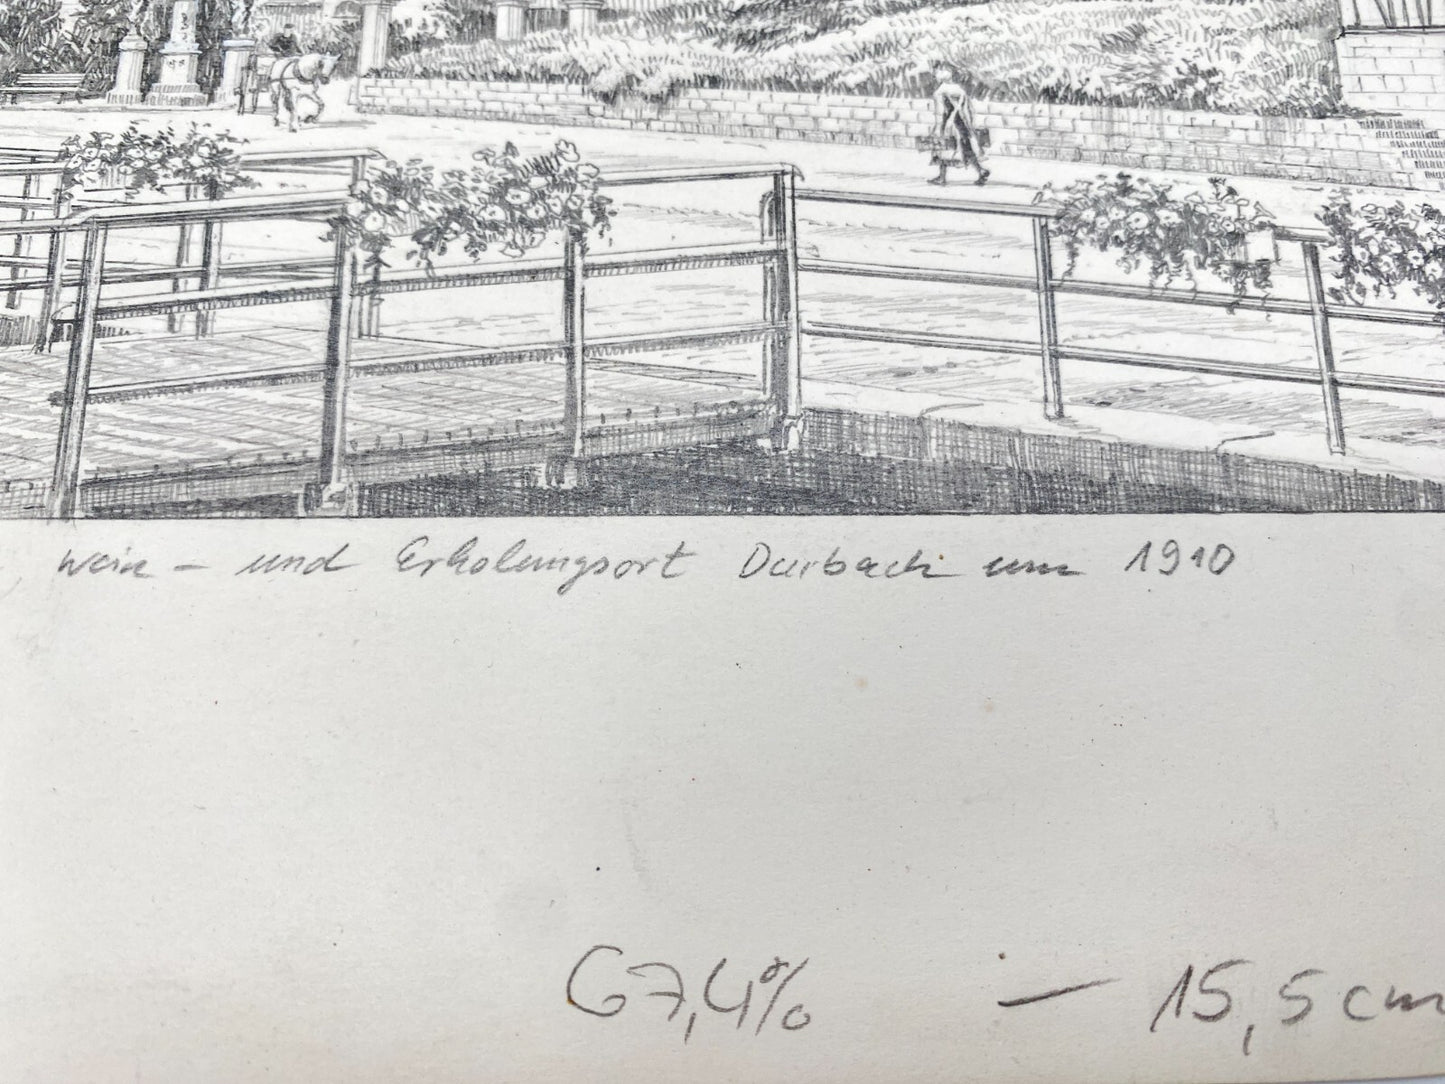 Wein - und Erholungsort Durbach um 1910
67,4% — 15,5 cm